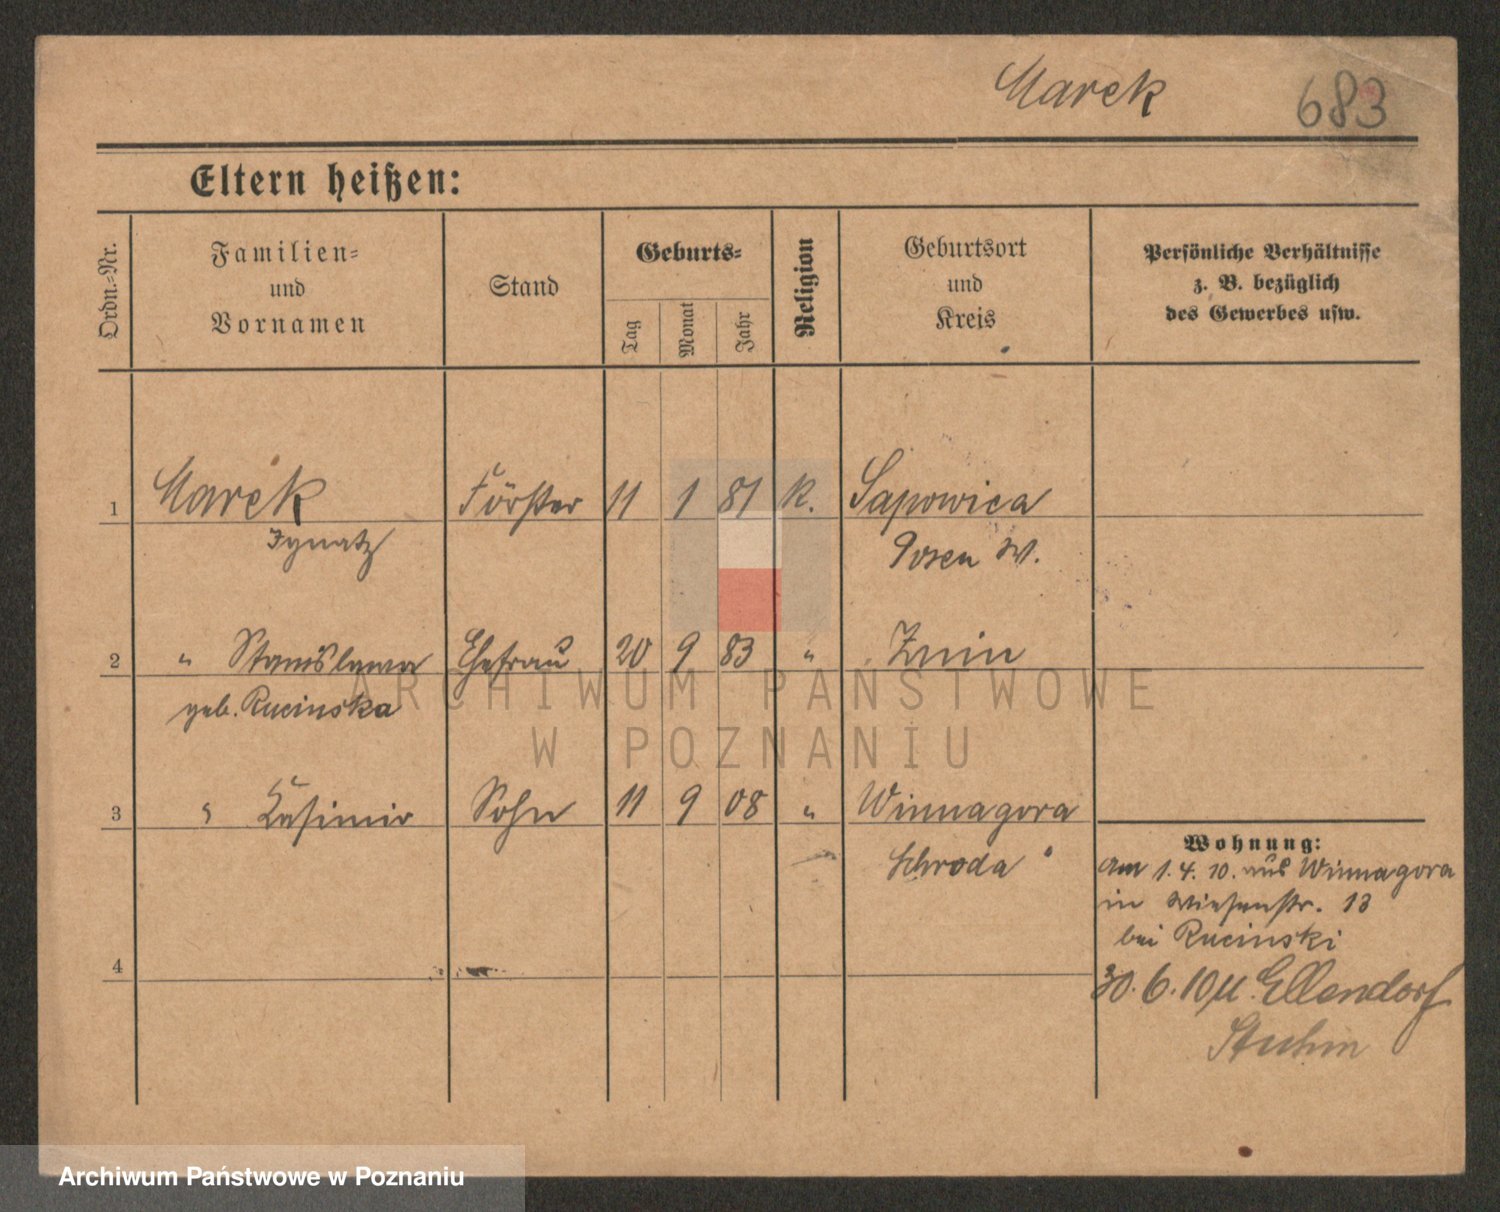 Marek 683
Eltern heißen:
Ordn.-Nr.
Familien-
und
Vornamen
Stand
Geburts-
Tag
Monat
Jahr
Religion
Geburtsort
und
Kreis
Persönliche Verhältnisse
z. B. bezüglich
des Gewerbes usw.
1 Marek Förster 11 1 81 K. Sapowica
Ignatz Posen W.
2 " Stanislawa Ehefrau 20 9 83 " Znin
geb. Rucinska
3 " Kasimir Sohn 11 9 08 " Winnagora
Schroda
4
Wohnung:
Am 1.4.10. aus Winnagora
in Wiesenstr. 13
bei Rucinski
30.6.10 n. Ellendorf
Stuhm
ARCHIWUM PAŃSTWOWE
W POZNANIU
Archiwum Państwowe w Poznaniu